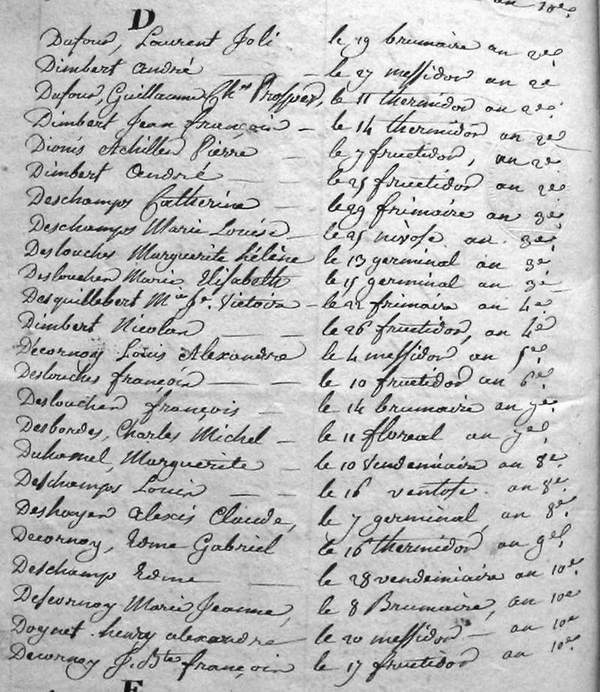 an 10e.
D
Dufour, Laurent Joli le 19 brumaire an 2e.
Dimbert andré le 27 messidor an 2e
Dufour, Guillaume Ch.es Prosper, le 11 thermidor an 2e.
Dimbert Jean françois - le 14 thermidor an 2e.
Dionis Achilles Pierre - le 7 fructidor, an 2e.
Dimbert andré - - le 25 fructidor an 2e.
Deschamps Catherine - le 29 frimaire an 3e.
Deschamps Marie Louise - le 25 nivose an 3e.
Deslouches Marguerite hélène le 13 germinal an 3e
Deslouches Marie Elisabeth le 15 germinal an 3e
Desquillebert M.ie J.e Victoire - le 22 frimaire an 4e
Dimbert Nicolas - - le 26 fructidor, an 4e
Décornoy Louis Alexandre le 4 messidor an 5e.
Deslouches françois - - le 10 fructidor an 6e.
Deslouches françois - le 14 brumaire an 7e.
Desbordes, Charles Michel - le 11 floreal an 7e.
Duhamel, Marguerite - le 10 Vendemiaire an 8e.
Deschamps Louis - - le 16 ventose an 8e.
Deshayes alexis Claude, le 7 germinal, an 8e.
Decornoy, Edme Gabriel le 16 thermidor an 9e.
Deschamp Edme - le 28 vendemiaire an 10e.
Descornoy Marie Jeanne, le 8 Brumaire, an 10e
Doynet henry alexandre - le 20 messidor - an 10e
Decornoy J. Bte françois le 17 fructidor an 10e.